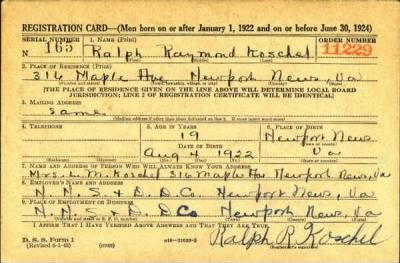 REGISTRATION CARD—(Men born on or after January 1, 1922 and on or before June 30, 1924)
SERIAL NUMBER 1. NAME (Print) ORDER NUMBER
N 165 Ralph Raymond Koschel 11229
2. PLACE OF RESIDENCE (Print)
316 Maple Ave Newport News, Va
[THE PLACE OF RESIDENCE GIVEN ON THE LINE ABOVE WILL DETERMINE LOCAL BOARD
JURISDICTION; LINE 2 OF REGISTRATION CERTIFICATE WILL BE IDENTICAL]
3. MAILING ADDRESS
Same
4. TELEPHONE 5. AGE IN YEARS 6. PLACE OF BIRTH
19 Newport News
DATE OF BIRTH
Aug 4 1922 Va
7. NAME AND ADDRESS OF PERSON WHO WILL ALWAYS KNOW YOUR ADDRESS
Mrs. L. M. Koschel 316 Maple Ave Newport News, Va
8. EMPLOYER'S NAME AND ADDRESS
N. N. S. & D. D. Co. Newport News, Va
9. PLACE OF EMPLOYMENT OR BUSINESS
N. N. S. & D. D. Co Newport News, Va
I AFFIRM THAT I HAVE VERIFIED ABOVE ANSWERS AND THAT THEY ARE TRUE.
D. S. S. Form 1 (over)
Ralph R. Koschel